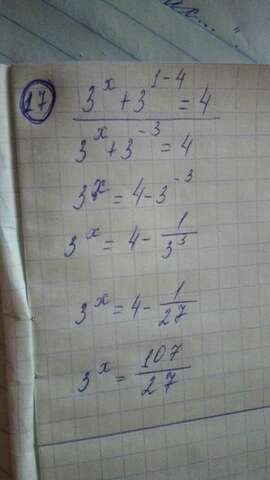 17
3^x + 3^{1-4} = 4
3^x + 3^{-3} = 4
3^x = 4 - 3^{-3}
3^x = 4 - \frac{1}{3^3}
3^x = 4 - \frac{1}{27}
3^x = \frac{107}{27}